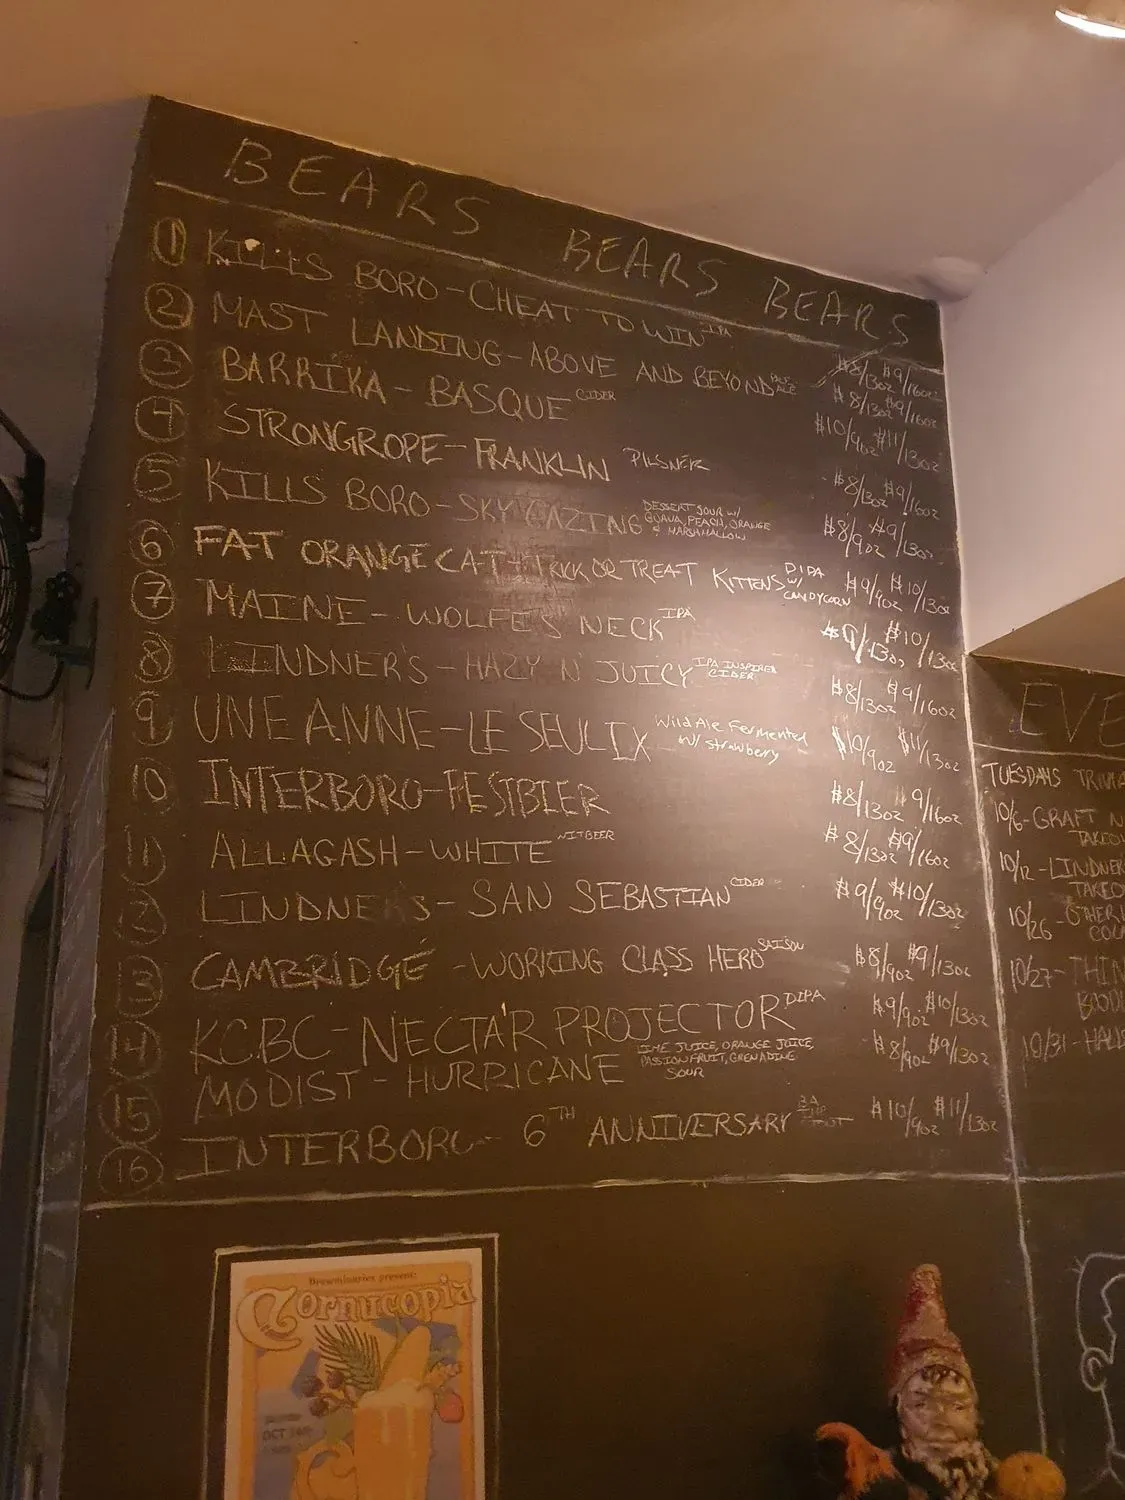 BEARS BEARS BEARS
1 KILLS BORO - CHEAT TO WIN IPA $8/13oz $9/16oz
2 MAST LANDING - ABOVE AND BEYOND PALE ALE $8/13oz $9/16oz
3 BARRIKA - BASQUE CIDER $10/9oz $11/13oz
4 STRONGROPE - FRANKLIN PILSNER $8/13oz $9/16oz
5 KILLS BORO - SKY GAZING DESSERT SOUR W/ GUAVA, PEACH, ORANGE & MARSHMALLOW $8/9oz $9/13oz
6 FAT ORANGE CAT - TRICK OR TREAT KITTENS DIPA W/ CANDYCORN $9/9oz $10/13oz
7 MAINE - WOLFE'S NECK IPA $9/13oz $10/13oz
8 LINDNER'S - HAZY N' JUICY IPA INSPIRED CIDER $8/13oz $9/16oz
9 UNE ANNE - LE SEUL IX Wild Ale Fermented w/ strawberry $10/9oz $11/13oz
10 INTERBORO - FESTBIER $8/13oz 9/16oz
11 ALLAGASH - WHITE WITBEER $8/13oz $9/16oz
12 LINDNER'S - SAN SEBASTIAN CIDER $9/9oz $10/13oz
13 CAMBRIDGE - WORKING CLASS HERO SAISON $8/9oz $9/13oz
14 KCBC - NECTAR PROJECTOR DIPA $9/9oz $10/13oz
15 MODIST - HURRICANE LIME JUICE, ORANGE JUICE, PASSIONFRUIT, GRENADINE SOUR $8/9oz $9/13oz
16 INTERBORO - 6TH ANNIVERSARY BA IMP STOUT $10/9oz $11/13oz
EVE
TUESDAYS TRIVIA
10/6 - GRAFT N
TAKEO
10/12 - LINDNER
TAKEO
10/26 - OTHER
COU
10/27 - THIN
BOOD
10/31 - HALL
Brewminaries present:
Cornucopia
OCT